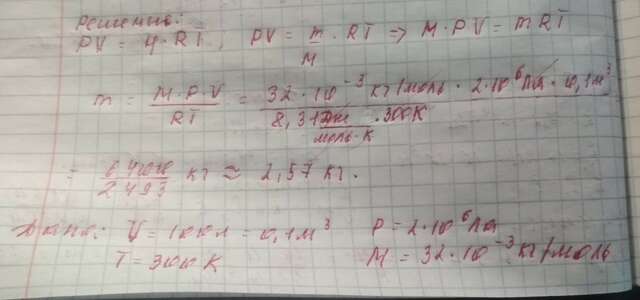 Решение:
PV = ν·RT; PV = m/M · RT => M·PV = mRT
m = M·P·V/RT = 32·10⁻³ кг/моль · 2·10⁶ Па · 0,1 м³ / 8,31 Дж/моль·К · 300К
= 6400/2493 кг ≈ 2,57 кг.
Дано: V = 100л = 0,1м³ P = 2·10⁶ Па
T = 300 К M = 32·10⁻³ кг/моль